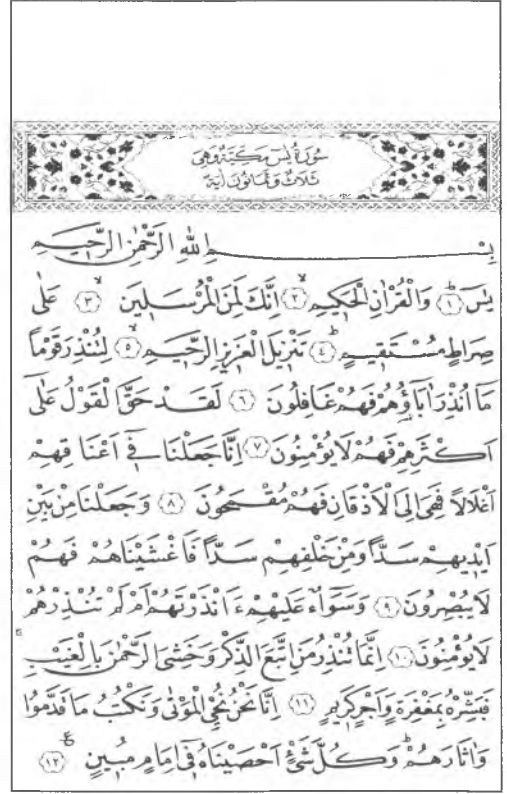 سُورَةُ يٰسٓ مَكِّيَّةٌ وَهِيَ
ثَلَاثٌ وَثَمَانُونَ اٰيَةً
بِسْمِ اللّٰهِ الرَّحْمٰنِ الرَّحِيمِ
يٰسٓ ﴿١﴾ وَالْقُرْاٰنِ الْحَكِيمِ ﴿٢﴾ اِنَّكَ لَمِنَ الْمُرْسَلِينَ ﴿٣﴾ عَلٰى
صِرَاطٍ مُسْتَقِيمٍ ﴿٤﴾ تَنْزِيلَ الْعَزِيزِ الرَّحِيمِ ﴿٥﴾ لِتُنْذِرَ قَوْمًا
مَٓا اُنْذِرَ اٰبَٓاؤُ۬هُمْ فَهُمْ غَافِلُونَ ﴿٦﴾ لَقَدْ حَقَّ الْقَوْلُ عَلٰٓى
اَكْثَرِهِمْ فَهُمْ لَا يُؤْمِنُونَ ﴿٧﴾ اِنَّا جَعَلْنَا فِٓي اَعْنَاقِهِمْ
اَغْلَالًا فَهِيَ اِلَى الْاَذْقَانِ فَهُمْ مُقْمَحُونَ ﴿٨﴾ وَجَعَلْنَا مِنْ بَيْنِ
اَيْدِيهِمْ سَدًّا وَمِنْ خَلْفِهِمْ سَدًّا فَاَغْشَيْنَاهُمْ فَهُمْ
لَا يُبْصِرُونَ ﴿٩﴾ وَسَوَٓاءٌ عَلَيْهِمْ ءَاَنْذَرْتَهُمْ اَمْ لَمْ تُنْذِرْهُمْ
لَا يُؤْمِنُونَ ﴿١٠﴾ اِنَّمَا تُنْذِرُ مَنِ اتَّبَعَ الذِّكْرَ وَخَشِيَ الرَّحْمٰنَ بِالْغَيْبِ
فَبَشِّرْهُ بِمَغْفِرَةٍ وَاَجْرٍ كَرِيمٍ ﴿١١﴾ اِنَّا نَحْنُ نُحْيِ الْمَوْتٰى وَنَكْتُبُ مَا قَدَّمُوا
وَاٰثَارَهُمْ وَكُلَّ شَيْءٍ اَحْصَيْنَاهُ فِٓي اِمَامٍ مُبِينٍ ﴿١٢﴾